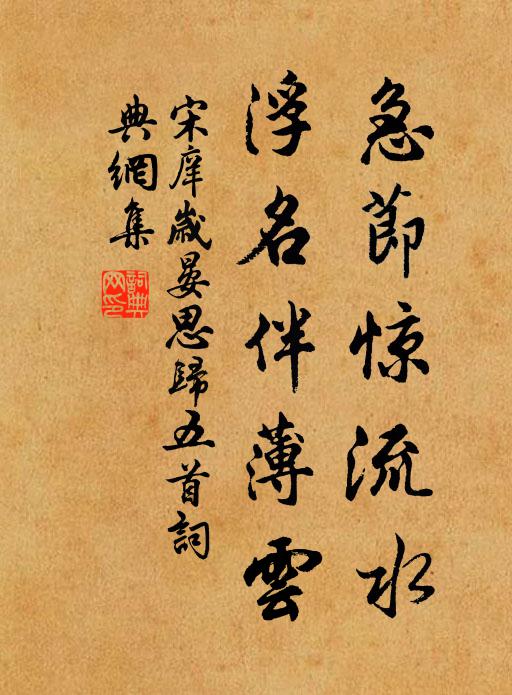 急節惊流水
浮名伴薄雲
宋庠歲晏思歸五首詞
典網集
詞典网印